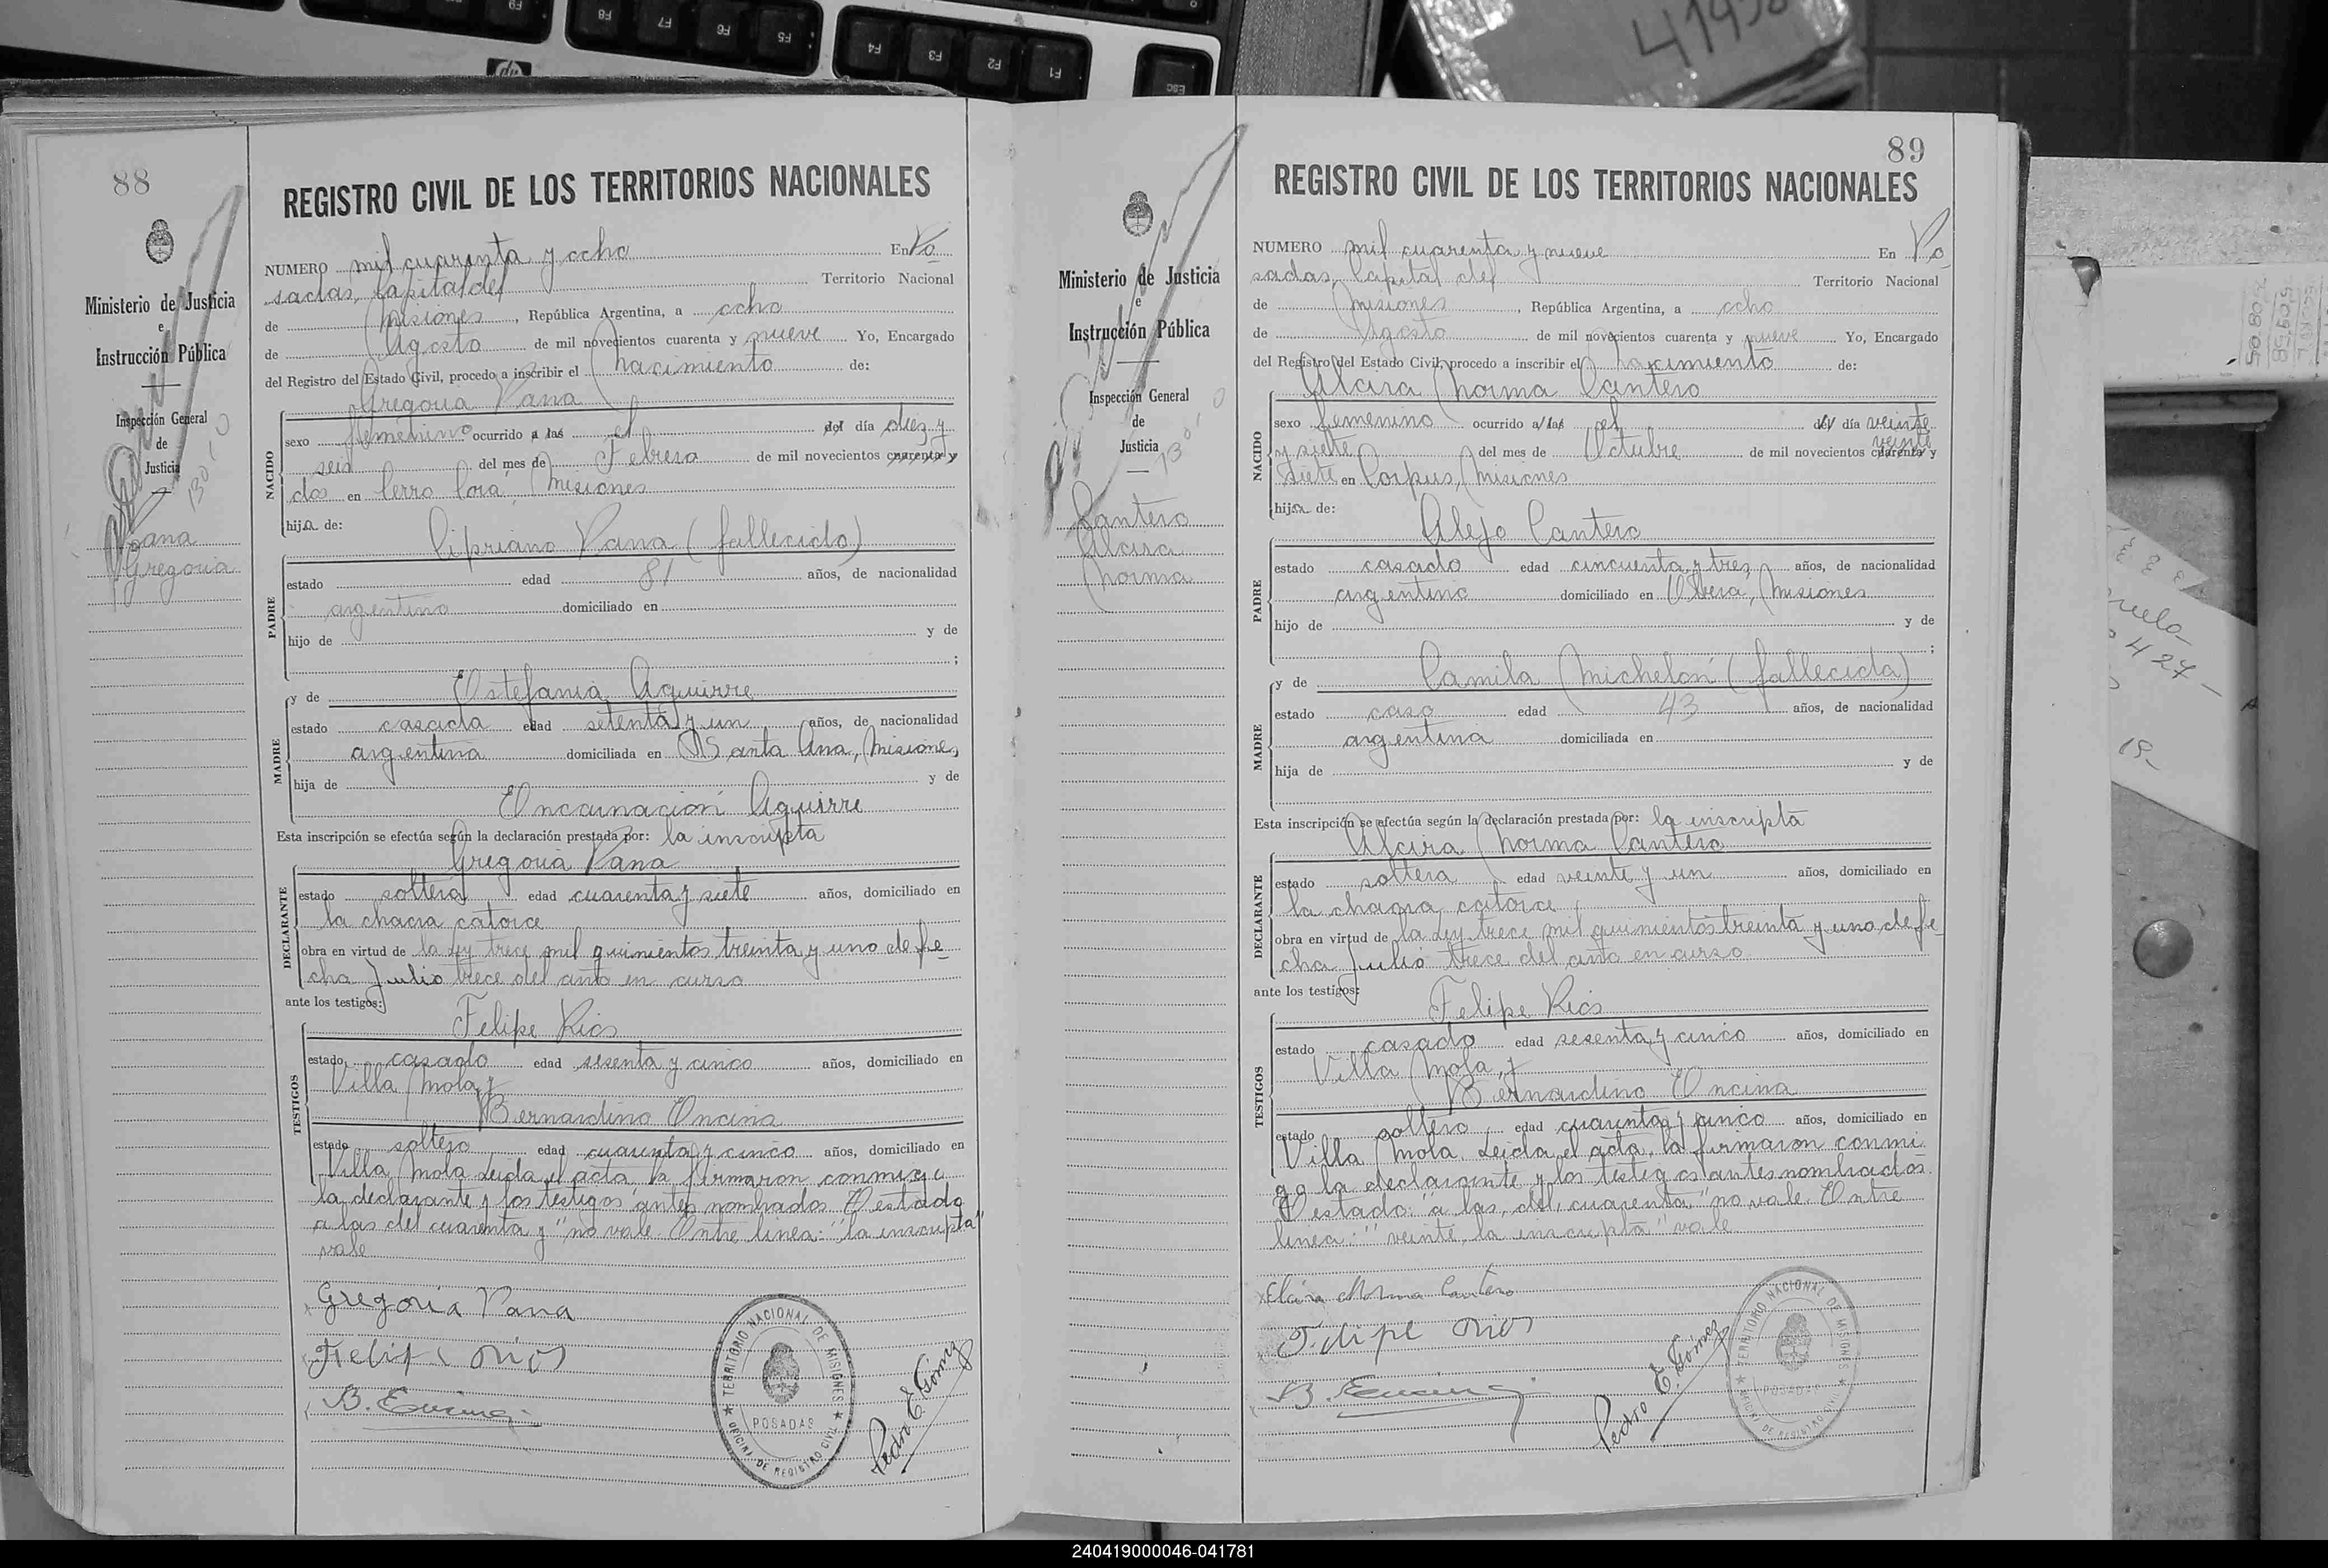 88
REGISTRO CIVIL DE LOS TERRITORIOS NACIONALES
Ministerio de Justicia
e
Instrucción Pública
Inspección General
de
Justicia
Vana
Gregoria
NUMERO mil cuarenta y ocho En Po
sadas, Capital del Territorio Nacional
de Misiones, República Argentina, a ocho
de Agosto de mil novecientos cuarenta y nueve Yo, Encargado
del Registro del Estado Civil, procedo a inscribir el Nacimiento de:
Gregoria Vana
NACIDO
sexo femenino ocurrido a las el del día diez y
seis del mes de Febrero de mil novecientos cuarenta y
dos en Cerro Corá, Misiones
hija de:
Cipriano Vana (fallecido)
PADRE
estado edad 81 años, de nacionalidad
argentino domiciliado en
hijo de y de
;
y de Estefania Aguirre
MADRE
estado casada edad setenta y un años, de nacionalidad
argentina domiciliada en Santa Ana, Misiones,
hija de y de
Encarnación Aguirre
Esta inscripción se efectúa según la declaración prestada por: la inscripta
Gregoria Vana
DECLARANTE
estado soltera edad cuarenta y siete años, domiciliado en
la chacra catorce
obra en virtud de la ley trece mil quinientos treinta y uno de fe
cha Julio trece del año en curso
ante los testigos:
Felipe Rios
TESTIGOS
estado casado edad sesenta y cinco años, domiciliado en
Villa Mola y
Bernardino Encina
estado soltero edad cuarenta y cinco años, domiciliado en
Villa Mola Leida el acta, la firmaron conmigo
la declarante y los testigos antes nombrados Testado
a las del cuarenta y "no vale. Entre linea: "la inscripta"
vale
Gregoria Vana
Felipe Rios
B. Encina
TERRITORIO NACIONAL DE MISIONES
POSADAS
OFICINA DE REGISTRO CIVIL
Pedro E. Gómez
89
REGISTRO CIVIL DE LOS TERRITORIOS NACIONALES
Ministerio de Justicia
e
Instrucción Pública
Inspección General
de
Justicia
Cantero
Alcira
Norma
NUMERO mil cuarenta y nueve En Po
sadas, Capital del Territorio Nacional
de Misiones, República Argentina, a ocho
de Agosto de mil novecientos cuarenta y nueve Yo, Encargado
del Registro del Estado Civil, procedo a inscribir el nacimiento de:
Alcira Norma Cantero
NACIDO
sexo femenino ocurrido a las el del día veinte
y siete del mes de Octubre de mil novecientos cuarenta y
veinte
siete en Corpus, Misiones
hija de:
Alejo Cantero
PADRE
estado casado edad cincuenta y tres años, de nacionalidad
argentino domiciliado en Oberá, Misiones
hijo de y de
;
y de Camila Michelón (fallecida)
MADRE
estado casa edad 43 años, de nacionalidad
argentina domiciliada en
hija de y de
Esta inscripción se efectúa según la declaración prestada por: la inscripta
Alcira Norma Cantero
DECLARANTE
estado soltera edad veinte y un años, domiciliado en
la chacra catorce
obra en virtud de la Ley trece mil quinientos treinta y uno de fe
cha Julio trece del año en curso
ante los testigos:
Felipe Rios
TESTIGOS
estado casado edad sesenta y cinco años, domiciliado en
Villa Mola, y
Bernardino Encina
estado soltero edad cuarenta y cinco años, domiciliado en
Villa Mola. Leida el acta, la firmaron conmi
go la declarante y los testigos antes nombrados.
Testado: "a las, del, cuarenta" no vale. Entre
linea: "veinte, la inscripta" vale
Alcira Norma Cantero
Felipe Rios
B. Encina
Pedro E. Gómez
TERRITORIO NACIONAL DE MISIONES
POSADAS
OFICINA DE REGISTRO CIVIL
F9
F8
F7
F6
F5
F4
F3
F2
F1
ESC
hp
240419000046-041781